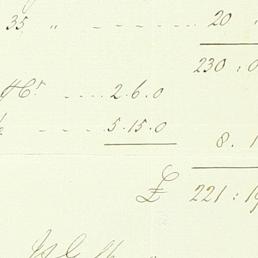 35 " - - - - - 20
230 : 0
Hr - - - 2.6.0
½ - - - 5.15.0
8.1
£ 221 : 19